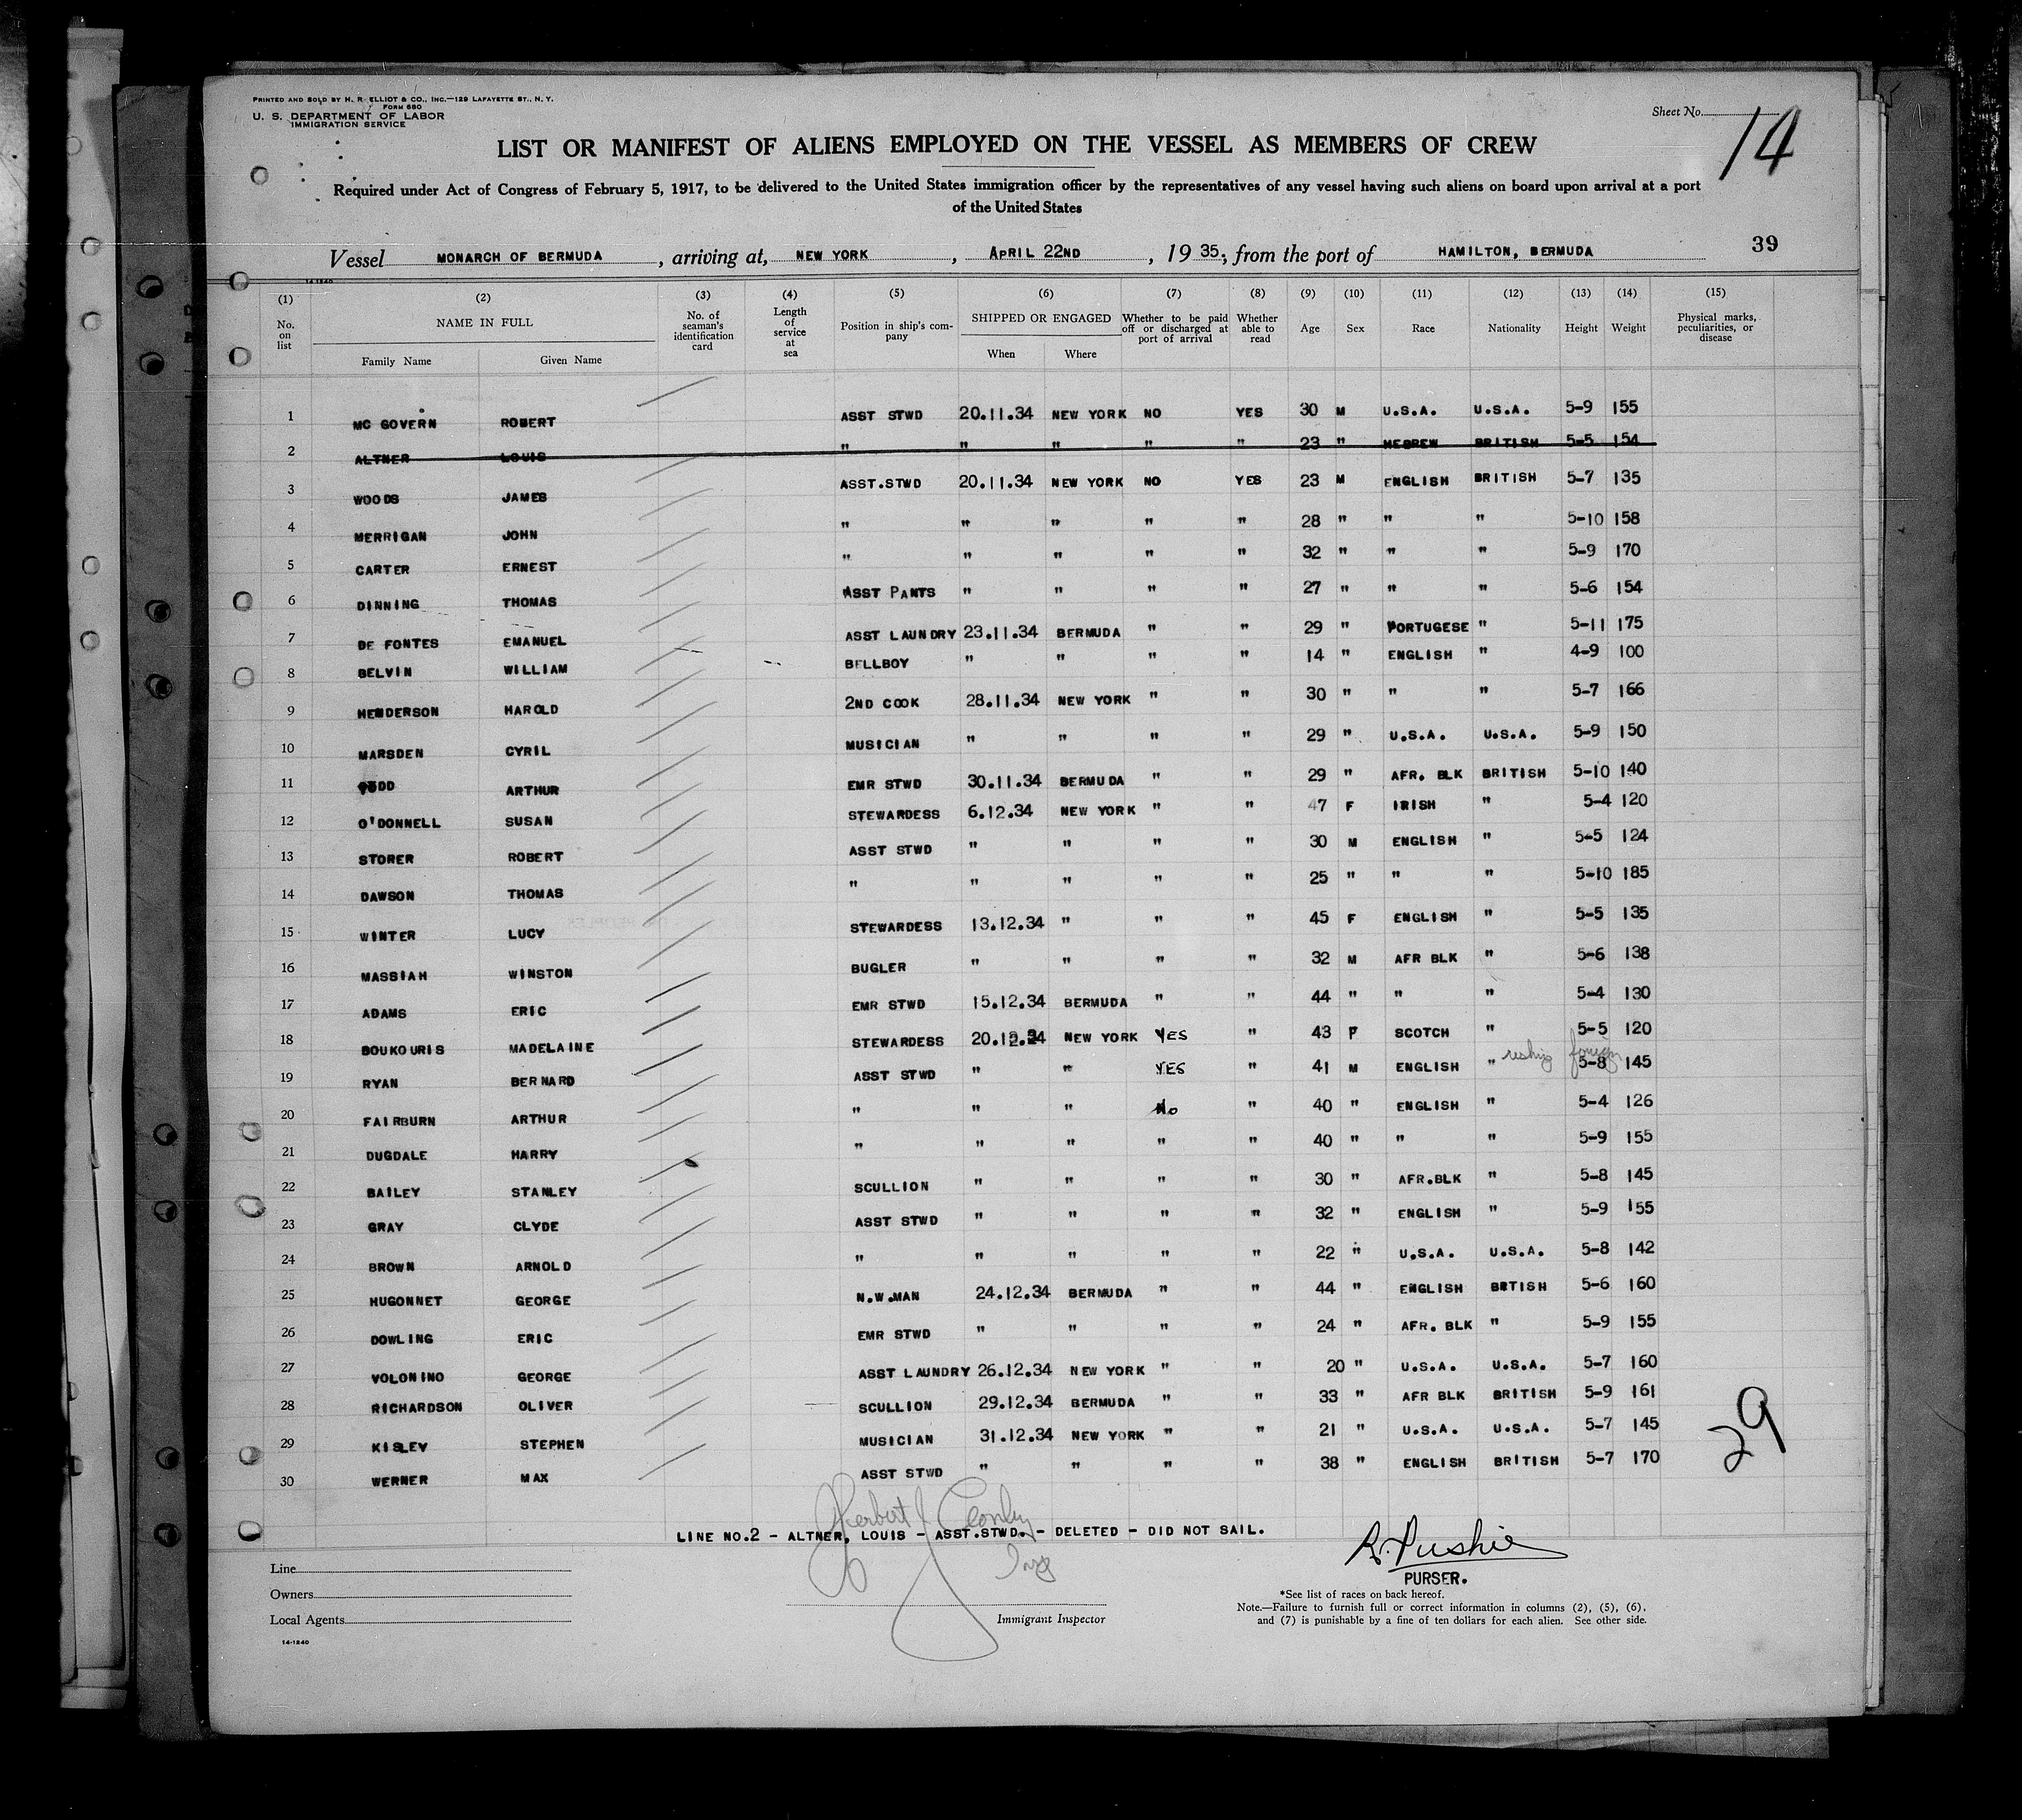 PRINTED AND SOLD BY H. R. ELLIOT & CO., INC.—129 LAFAYETTE ST., N. Y.
FORM 680
U. S. DEPARTMENT OF LABOR
IMMIGRATION SERVICE
Sheet No. 14
LIST OR MANIFEST OF ALIENS EMPLOYED ON THE VESSEL AS MEMBERS OF CREW
Required under Act of Congress of February 5, 1917, to be delivered to the United States immigration officer by the representatives of any vessel having such aliens on board upon arrival at a port
of the United States
39
Vessel MONARCH OF BERMUDA, arriving at, NEW YORK, APRIL 22ND, 1935, from the port of HAMILTON, BERMUDA
14-1240
(1) (2) (3) (4) (5) (6) (7) (8) (9) (10) (11) (12) (13) (14) (15)
No. on list NAME IN FULL Family Name Given Name No. of seaman's identification card Length of service at sea Position in ship's company SHIPPED OR ENGAGED When Where Whether to be paid off or discharged at port of arrival Whether able to read Age Sex Race Nationality Height Weight Physical marks, peculiarities, or disease
1 MC GOVERN ROBERT ASST STWD 20.11.34 NEW YORK NO YES 30 M U.S.A. U.S.A. 5-9 155
2 ALTNER LOUIS " " " " " 23 " HEBREW BRITISH 5-5 154
3 WOODS JAMES ASST.STWD 20.11.34 NEW YORK NO YES 23 M ENGLISH BRITISH 5-7 135
4 MERRIGAN JOHN " " " " " 28 " " " 5-10 158
5 CARTER ERNEST " " " " " 32 " " " 5-9 170
6 DINNING THOMAS ASST PANTS " " " " 27 " " " 5-6 154
7 DE FONTES EMANUEL ASST LAUNDRY 23.11.34 BERMUDA " " 29 " PORTUGESE " 5-11 175
8 BELVIN WILLIAM BELLBOY " " " " 14 " ENGLISH " 4-9 100
9 HENDERSON HAROLD 2ND COOK 28.11.34 NEW YORK " " 30 " " " 5-7 166
10 MARSDEN CYRIL MUSICIAN " " " " 29 " U.S.A. U.S.A. 5-9 150
11 TODD ARTHUR EMR STWD 30.11.34 BERMUDA " " 29 " AFR. BLK BRITISH 5-10 140
12 O'DONNELL SUSAN STEWARDESS 6.12.34 NEW YORK " " 47 F IRISH " 5-4 120
13 STORER ROBERT ASST STWD " " " " 30 M ENGLISH " 5-5 124
14 DAWSON THOMAS " " " " " 25 " " " 5-10 185
15 WINTER LUCY STEWARDESS 13.12.34 " " " 45 F ENGLISH " 5-5 135
16 MASSIAH WINSTON BUGLER " " " " 32 M AFR BLK " 5-6 138
17 ADAMS ERIC EMR STWD 15.12.34 BERMUDA " " 44 " " " 5-4 130
18 BOUKOURIS MADELAINE STEWARDESS 20.12.34 NEW YORK YES " 43 F SCOTCH " 5-5 120
reship foreign
19 RYAN BERNARD ASST STWD " " YES " 41 M ENGLISH " 5-8 145
20 FAIRBURN ARTHUR " " " No " 40 " ENGLISH " 5-4 126
21 DUGDALE HARRY " " " " " 40 " " " 5-9 155
22 BAILEY STANLEY SCULLION " " " " 30 " AFR.BLK " 5-8 145
23 GRAY CLYDE ASST STWD " " " " 32 " ENGLISH " 5-9 155
24 BROWN ARNOLD " " " " " 22 " U.S.A. U.S.A. 5-8 142
25 HUGONNET GEORGE N.W.MAN 24.12.34 BERMUDA " " 44 " ENGLISH BRTISH 5-6 160
26 DOWLING ERIC EMR STWD " " " " 24 " AFR. BLK " 5-9 155
27 VOLONINO GEORGE ASST LAUNDRY 26.12.34 NEW YORK " " 20 " U.S.A. U.S.A. 5-7 160
28 RICHARDSON OLIVER SCULLION 29.12.34 BERMUDA " " 33 " AFR BLK BRITISH 5-9 161
29 KISLEY STEPHEN MUSICIAN 31.12.34 NEW YORK " " 21 " U.S.A. U.S.A. 5-7 145
29
30 WERNER MAX ASST STWD " " " " 38 " ENGLISH BRITISH 5-7 170
LINE NO.2 - ALTNER, LOUIS - ASST.STWD. - DELETED - DID NOT SAIL.
Herbert J
R. Pushie
PURSER.
Line
Owners
Local Agents
Immigrant Inspector
*See list of races on back hereof.
Note.—Failure to furnish full or correct information in columns (2), (5), (6),
and (7) is punishable by a fine of ten dollars for each alien. See other side.
14-1240